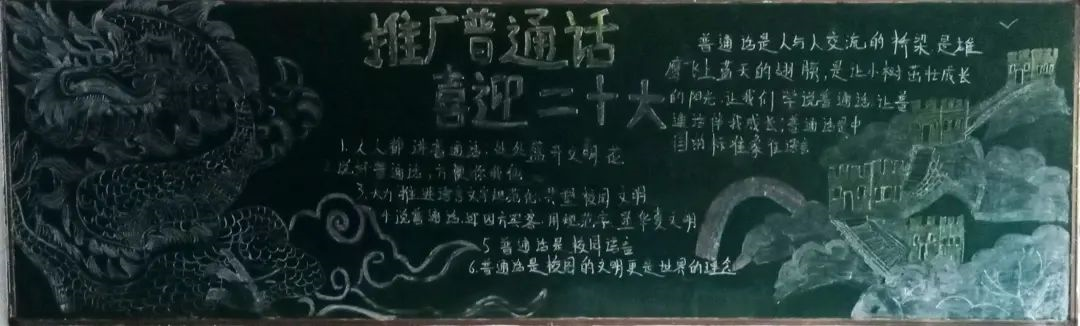 推广普通话
喜迎二十大
1.人人都讲普通话,处处盛开文明花
2.说好普通话,方便你我他
3.大力推进语言文字规范化,共塑校园文明
4.说普通话,迎四方宾客,用规范字,显华夏文明
5 普通话是校园语言
6.普通话是校园的文明更是世界的理念
普通话是人与人交流的桥梁是雄
鹰飞上蓝天的翅膀,是让小树茁壮成长
的阳光,让我们学说普通话,让普
通话伴我成长;普通话是中
国的标准家住语言